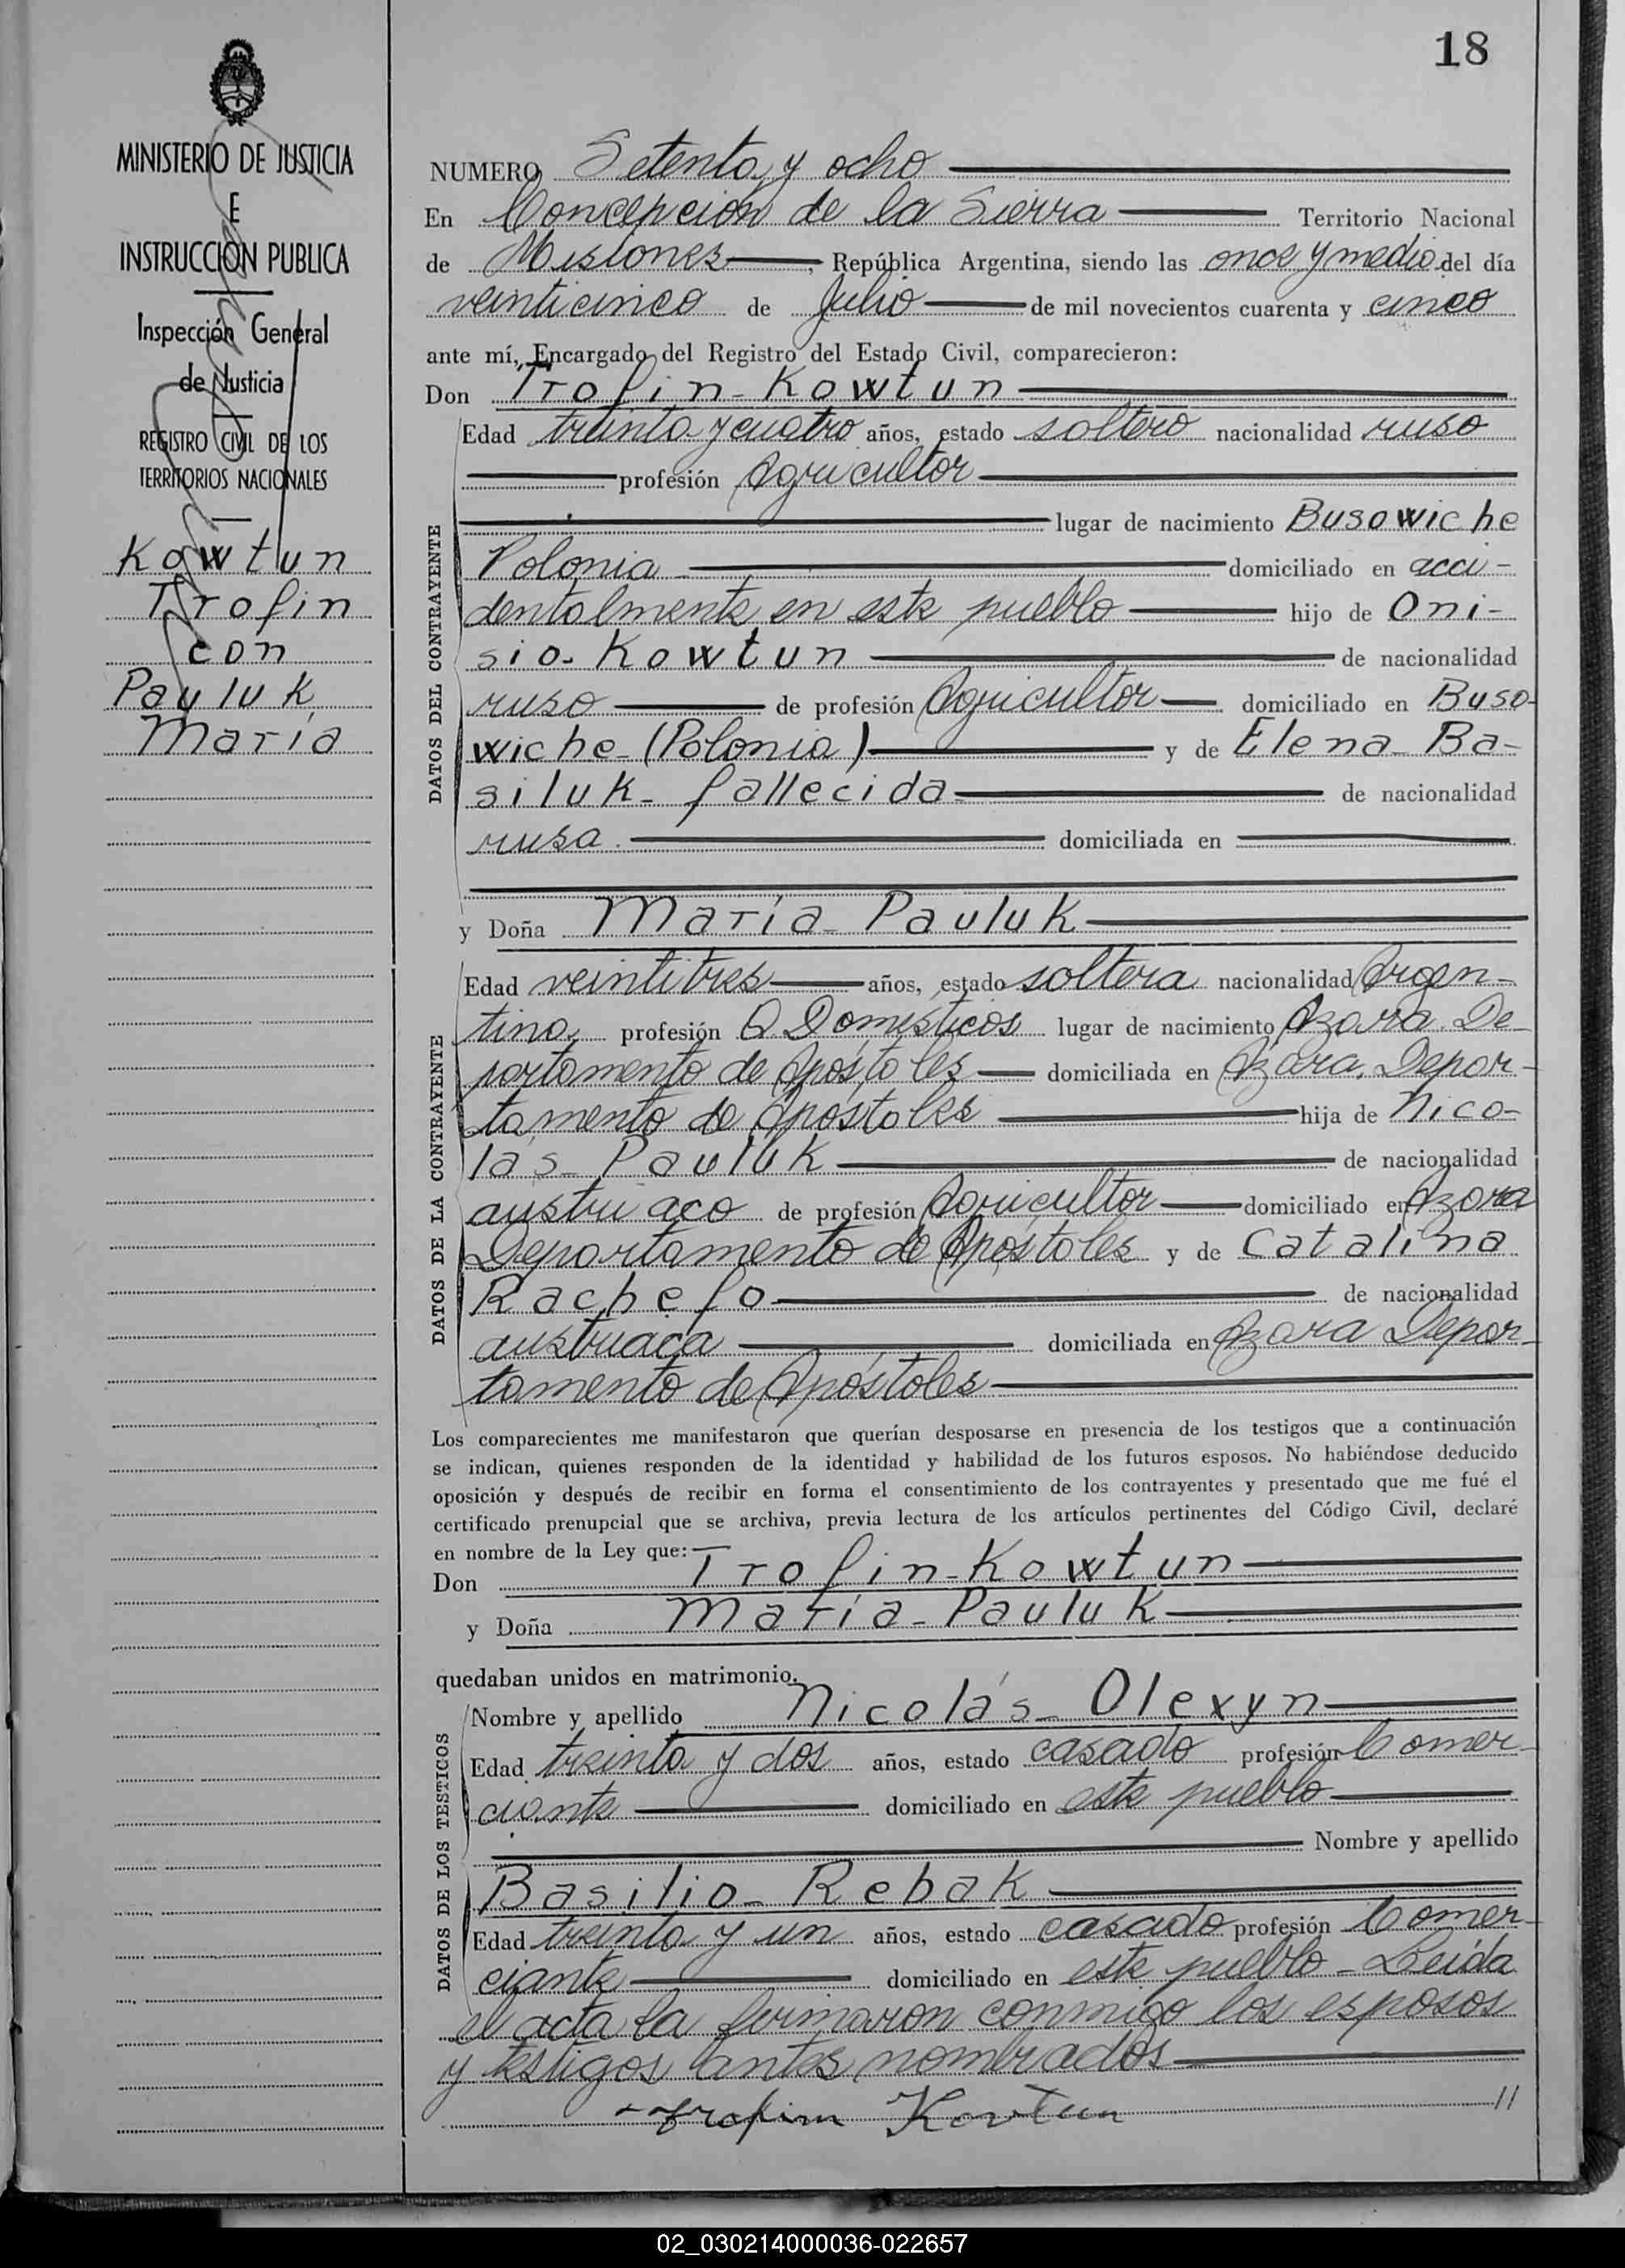 18
MINISTERIO DE JUSTICIA
E
INSTRUCCIÓN PUBLICA
Inspección General
de Justicia
REGISTRO CIVIL DE LOS
TERRITORIOS NACIONALES
Kowtun
Trofin
con
Pauluk
María
NUMERO Setenta y ocho
En Concepción de la Sierra Territorio Nacional
de Misiones, República Argentina, siendo las once y media del día
veinticinco de Julio de mil novecientos cuarenta y cinco
ante mí, Encargado del Registro del Estado Civil, comparecieron:
Don Trofin-Kowtun
DATOS DEL CONTRAYENTE
Edad treinta y cuatro años, estado soltero nacionalidad ruso
profesión Agricultor
lugar de nacimiento Busowiche
Polonia domiciliado en acci-
dentalmente en este pueblo hijo de Oni-
sio-Kowtun de nacionalidad
ruso de profesión Agricultor domiciliado en Buso-
wiche-(Polonia) y de Elena-Ba-
siluk-fallecida- de nacionalidad
rusa. domiciliada en
y Doña María-Pauluk
DATOS DE LA CONTRAYENTE
Edad veintitres años, estado soltera nacionalidad Argen-
tina profesión Q Domésticos lugar de nacimiento Azara. De-
partamento de Apóstoles domiciliada en Azara. Depar-
tamento de Apóstoles hija de Nico-
lás-Pauluk de nacionalidad
austriaco de profesión Agricultor domiciliado en Azara
Departamento de Apóstoles y de Catalina
Rachefo de nacionalidad
austriaca domiciliada en Azara Depar-
tamento de Apóstoles
Los comparecientes me manifestaron que querían desposarse en presencia de los testigos que a continuación
se indican, quienes responden de la identidad y habilidad de los futuros esposos. No habiéndose deducido
oposición y después de recibir en forma el consentimiento de los contrayentes y presentado que me fué el
certificado prenupcial que se archiva, previa lectura de los artículos pertinentes del Código Civil, declaré
en nombre de la Ley que:
Don Trofin-Kowtun
y Doña María-Pauluk
quedaban unidos en matrimonio.
DATOS DE LOS TESTIGOS
Nombre y apellido Nicolás-Olexyn
Edad treinta y dos años, estado casado profesión Comer-
ciante domiciliado en este pueblo
Nombre y apellido
Basilio-Rebak
Edad treinta y un años, estado casado profesión Comer-
ciante domiciliado en este pueblo-Leída
el acta la firmaron conmigo los esposos
y testigos antes nombrados
Trofim Kovtun //
02_030214000036-022657